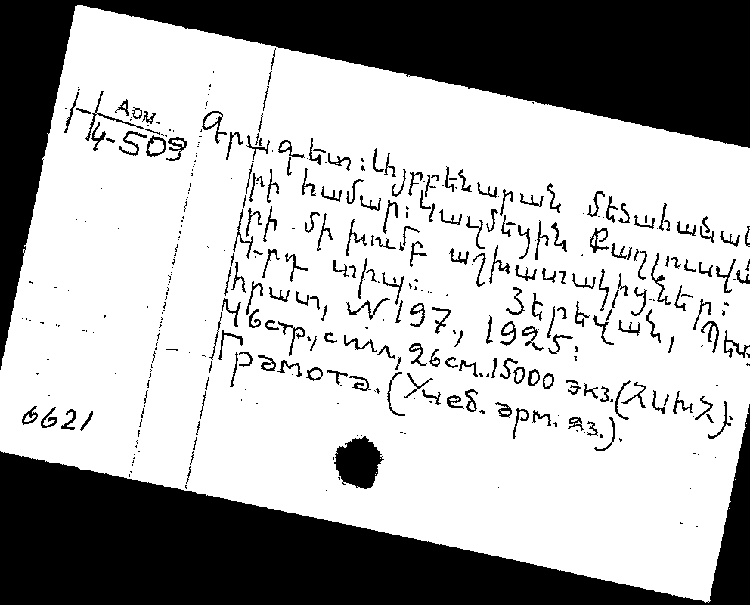 Арм.
4-509
Գրագետ: Այբբենարան մեծահասակ
րի համար: Կազմեցին Քաղլուսվա
րի մի խումբ աշխատակիցներ:
4-րդ տիպ: Յերեվան, Պետ
հրատ, № 197, 1925:
46стр., с илл, 26см. 15000 экз. (ՀՍԽՀ):
Грамота. (Учеб. арм. яз.).
6621